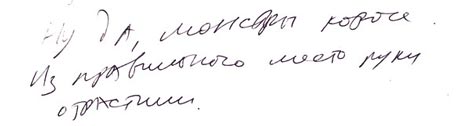 Ну да, монстры короче.
Из правильного место руки
отрастили.